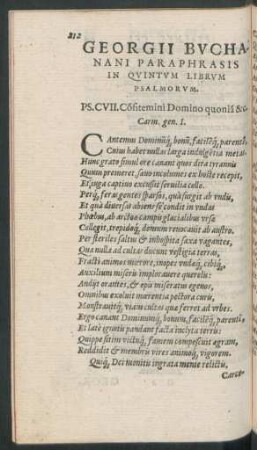 212
GEORGII BVCHA-
NANI PARAPHRASIS
IN QVINTVM LIBRVM
PSALMORVM.
PS.CVII. Cõfitemini Domino quoniã &c.
Carm. gen. I.
CAntemus Dominũq́, bonũ, facilẽq́, parentẽ,
Cuius habet nullas larga indulgẽtia metas.
Hunc grati simul ore canant quos dira tyrannis
Quum premeret, saluo incolumes ex hoste recepit,
Et iuga captiuo excussit seruilia collo.
Perq́, feras gentes sparsos, quà surgit ab vndis,
Et quà diuerso abiens se condit in vndas
Phœbus, ab arctoo campi glacialibus vrsæ
Collegit, trepidosq́, domum reuocauit ab austro.
Per steriles saltus & inhospita saxa vagantes,
Qua nulla ad cultas ducunt vestigia terras,
Fracti animos mœrore, inopes vndæq́, cibiq́,
Auxilium miseris implorauere querelis:
Audijt orantes, & opis miseratus egenos,
Omnibus exoluit mœrentia pectora curis,
Monstrauitq́, viam cultas quæ ferret ad vrbes.
Ergo canant Dominumq́, bonum, facilẽq́, parentẽ,
Et late gratis pandant facta inclyta terris:
Quippe sitim victuq́, famem compescuit ægram,
Reddidit & membris vires animoq́, vigorem.
Quiq́, Dei monitis ingrata mente relictis,
Carce-